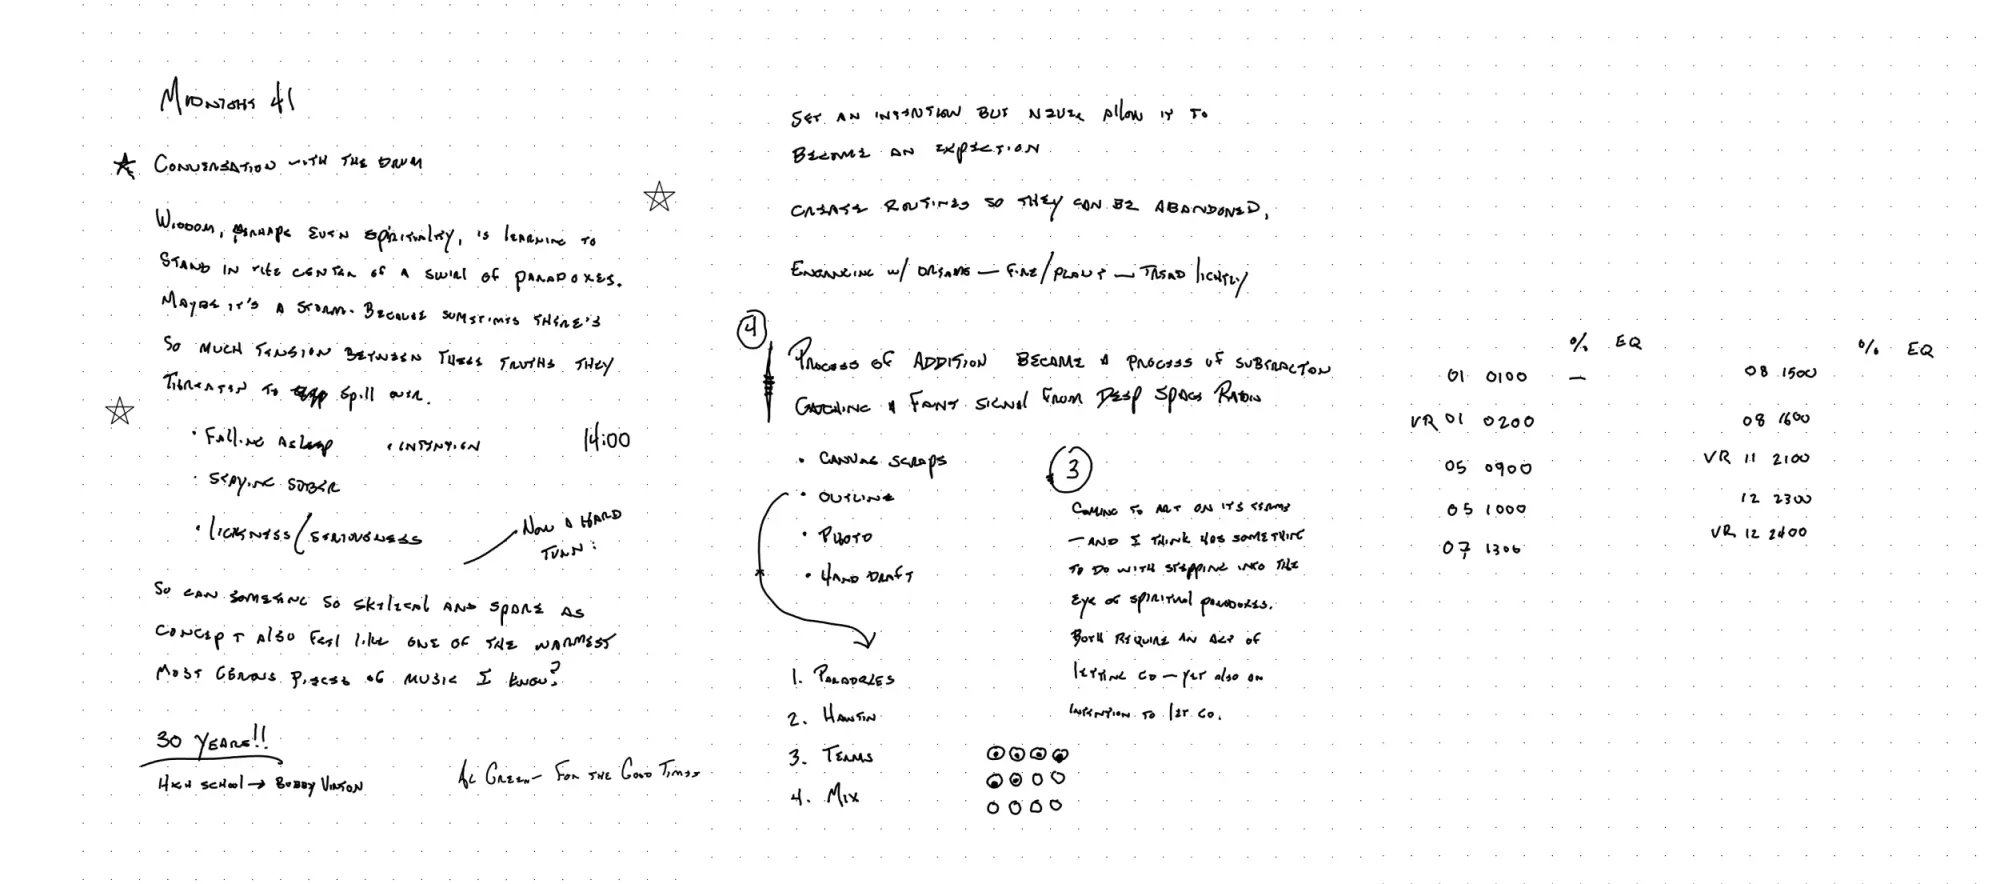 MIDNIGHT 41
CONVERSATION WITH THE DRUM
WISDOM, PERHAPS EVEN SPIRITUALITY, IS LEARNING TO
STAND IN THE CENTER OF A SWIRL OF PARADOXES.
MAYBE IT'S A STORM. BECAUSE SOMETIMES THERE'S
SO MUCH TENSION BETWEEN THESE TRUTHS THEY
THREATEN TO SPILL OVER.
• FALLING ASLEEP • INTENTION 14:00
• STAYING SOBER
• LIGHTNESS/SERIOUSNESS
NOW A HARD
TURN:
SO CAN SOMETHING SO SKELETAL AND SPARE AS
CONCEPT ALSO FEEL LIKE ONE OF THE WARMEST
MOST PIECES OF MUSIC I KNOW?
30 YEARS!!
HIGH SCHOOL → BOBBY VINTON
AL GREEN - FOR THE GOOD TIMES
SET AN INTENTION BUT NEVER ALLOW IT TO
BECOME AN EXPECTION
CREATE ROUTINES SO THEY CAN BE ABANDONED.
ENGAGING W/ DREAMS — FIRE/PLANT — TREAD LIGHTLY
4
PROCESS OF ADDITION BECAME A PROCESS OF SUBTRACTON
CATCHING A FAINT SIGNAL FROM DEEP SPACE RADIO
• CANVAS SCRAPS
• OUTLINE
• PHOTO
• HAND DRAFT
1. PARADOXES
2.
3. TERMS
4. MIX
3
COMING TO ART ON ITS TERMS
— AND I THINK HAS SOMETHING
TO DO WITH STEPPING INTO THE
EYE OF SPIRITUAL PARADOXES.
BOTH REQUIRE AN ACT OF
LETTING GO — YET ALSO AN
INTENTION TO LET GO.
% EQ
01 0100 —
VR 01 0200
05 0900
05 1000
07 1300
% EQ
08 1500
08 1600
VR 11 2100
12 2300
VR 12 2400